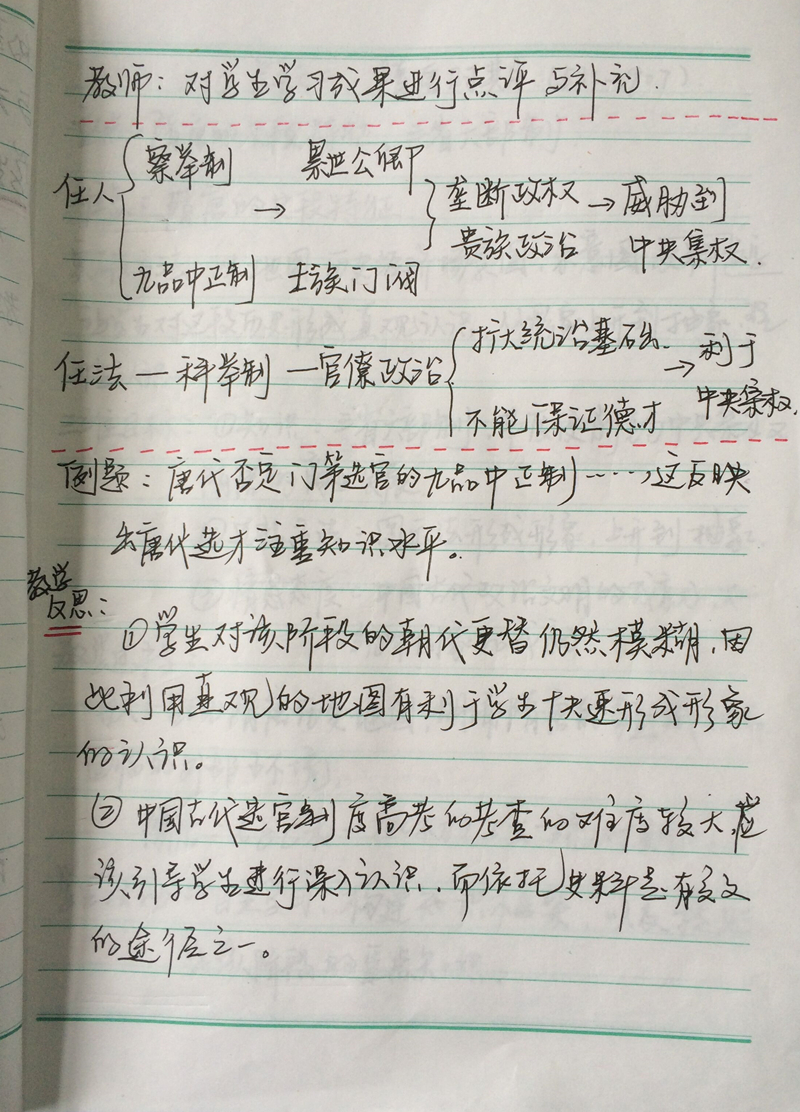 教师：对学生学习成果进行点评与补充.
任人 { 察举制 → 累世公卿 } 垄断政权 → 威胁到
九品中正制 士族门阀 贵族政治 中央集权.
任法 — 科举制 — 官僚政治 { 扩大统治基础. → 利于
不能保证德才 中央集权.
例题：唐代否定门第选官的九品中正制……这反映
出唐代选才注重知识水平。
教学
反思：
①学生对该阶段的朝代更替仍然模糊,因
此利用直观的地图有利于学生快速形成形象
的认识。
②中国古代选官制度高考的考查的难度较大,应
该引导学生进行深入认识,而依托史料是有效
的途径之一。